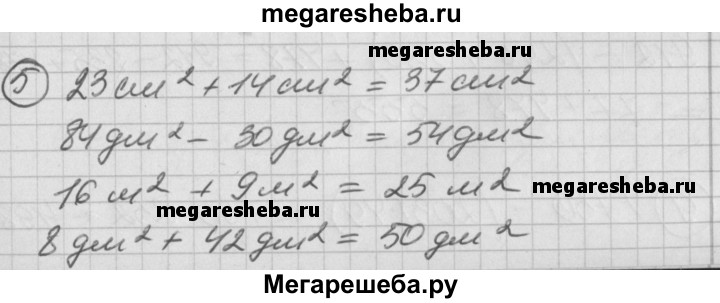 megaresheba.ru
megaresheba.ru
5 23 см² + 14 см² = 37 см²
84 дм² - 30 дм² = 54 дм²
16 м² + 9 м² = 25 м² megaresheba.ru
megaresheba.ru
8 дм² + 42 дм² = 50 дм²
Мегарешеба.ру